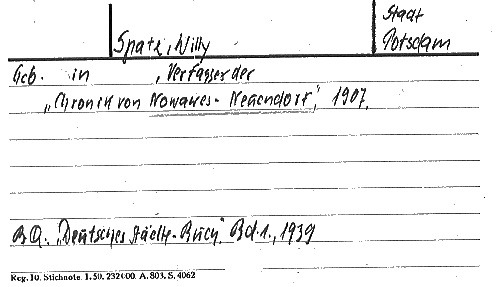 Staat
Spatz, Willy
Potsdam
Geb. in , Verfasser der
„Chronik von Nowawes-Neuendorf", 1907.
BQ. „Deutsches Städte-Buch". Bd. 1., 1939
Reg. 10. Stichnote. 1. 50. 232000. A. 803. S. 4062